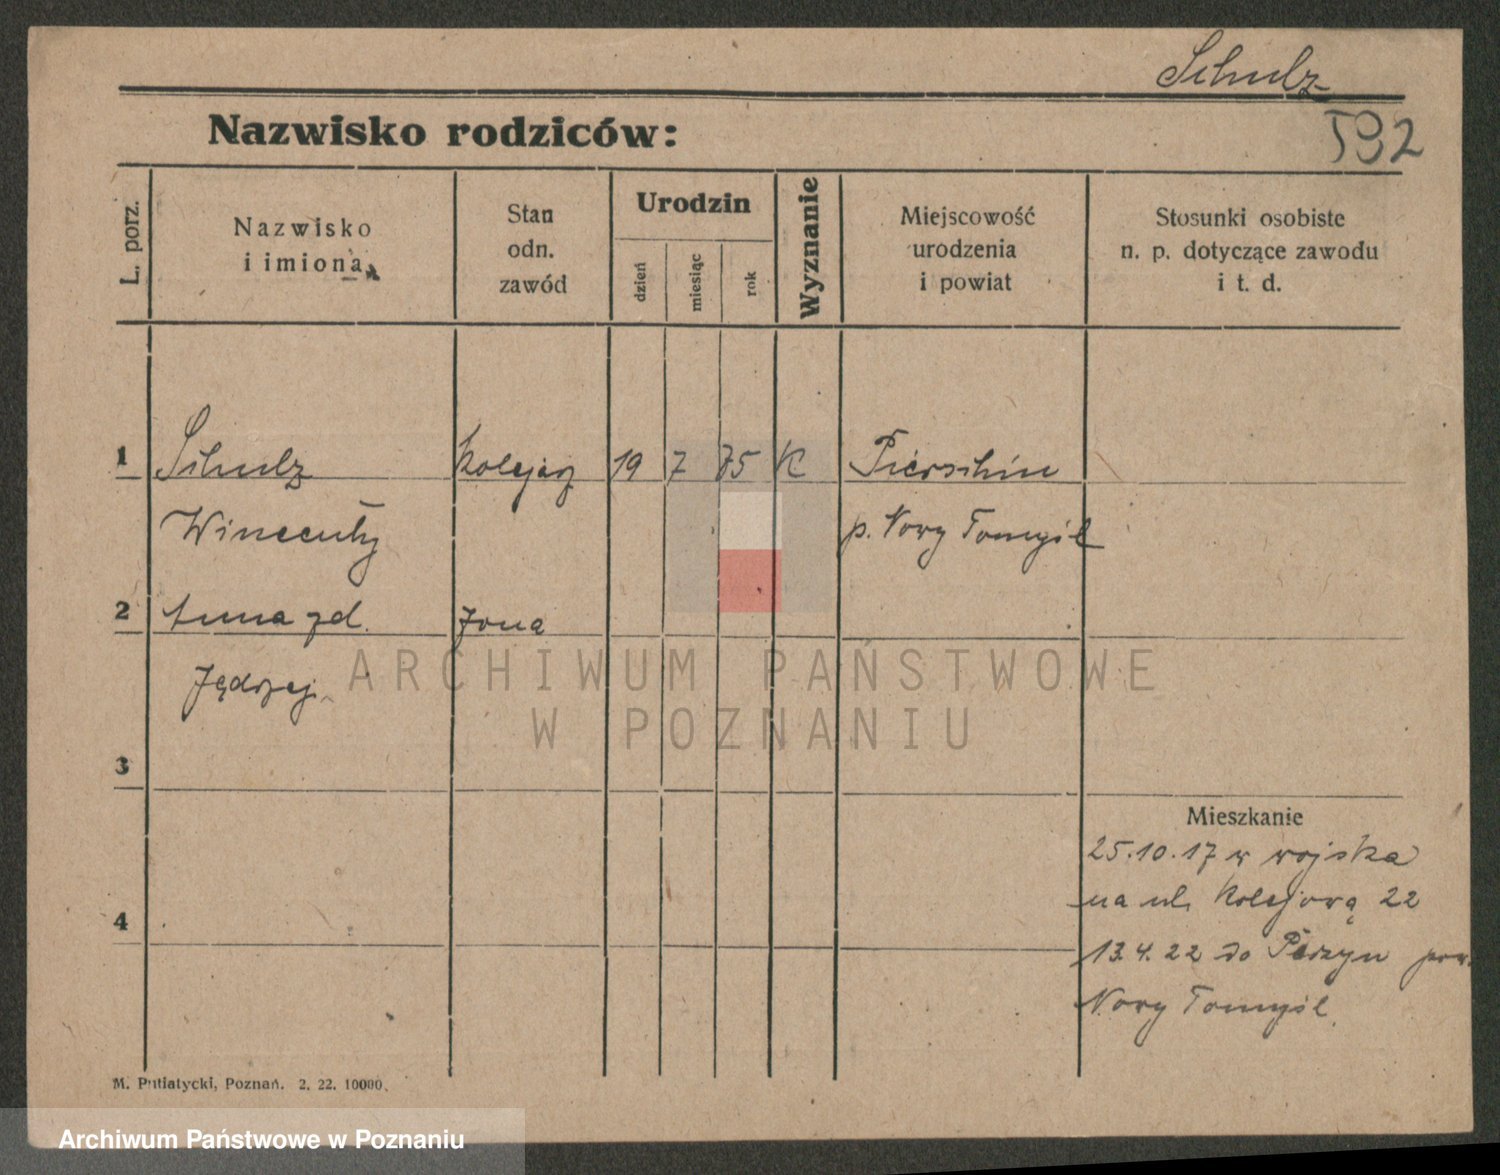 Schulz
Nazwisko rodziców:
592
L. porz.
Nazwisko
i imiona
Stan
odn.
zawód
Urodzin
dzień
miesiąc
rok
Wyznanie
Miejscowość
urodzenia
i powiat
Stosunki osobiste
n. p. dotyczące zawodu
i t. d.
1 Schulz kolejarz 19 7 75 K Pierschin
Wincenty p. Nowy Tomyśl
2 Anna zd. żona
Jędrzej
ARCHIWUM PAŃSTWOWE
W POZNANIU
3
Mieszkanie
25.10.17 w wojska
na ul. Kolejową 22
4
13.4.22 do Perzyn pow.
Nowy Tomyśl
M. Putiatycki, Poznań. 2. 22. 10000.
Archiwum Państwowe w Poznaniu